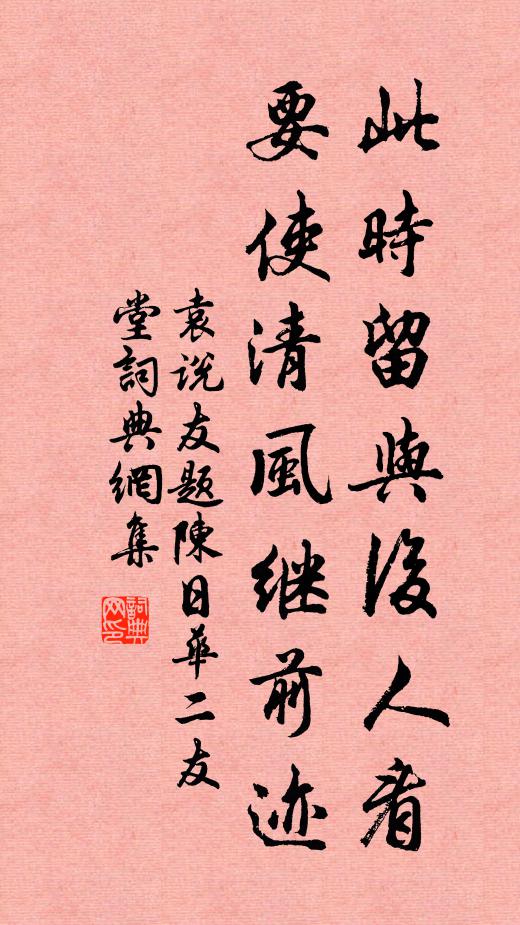 此時留與後人看
要使清風继前迹
袁說友題陳日華二友
堂詞典網集
詞典
网印